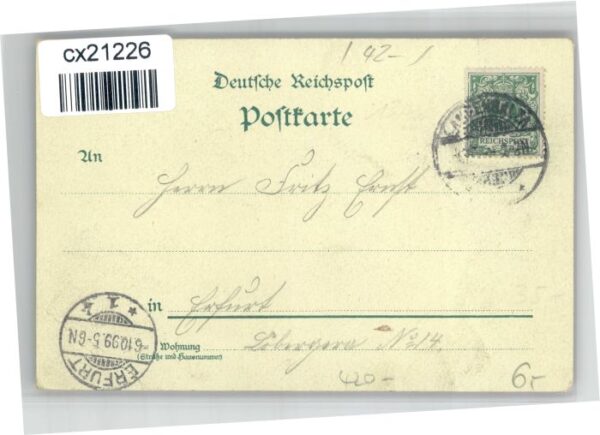 cx21226
( 42-)
Deutsche Reichspost
Postkarte
REICHSPOST
An
Herrn Fritz Ernst
in Erfurt
Wohnung
(Straße und Hausnummer)
Löbergera No 14.
ERFURT
* 1 k
6.10.99.5-6N.
420-
6,-